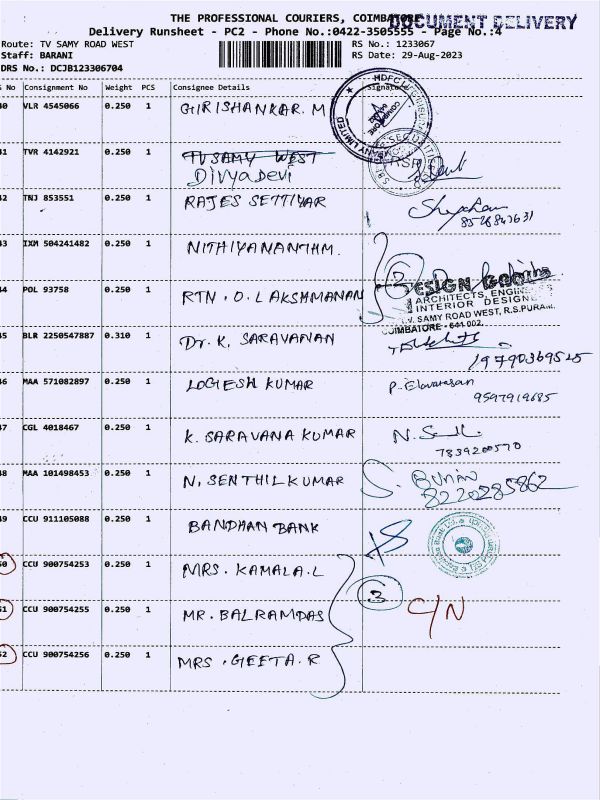 THE PROFESSIONAL COURIERS, COIMBATORE
DOCUMENT DELIVERY
Delivery Runsheet - PC2 - Phone No.:0422-3505555 - Page No.:4
Route: TV SAMY ROAD WEST
RS No.: 1233067
Staff: BARANI
RS Date: 29-Aug-2023
DRS No.: DCJB123306704
s No Consignment No Weight PCS Consignee Details Signature
40 VLR 4545066 0.250 1 GIRISHANKAR. M
41 TVR 4142921 0.250 1 TVSAMY WEST
DIVYADEVI
42 TNJ 853551 0.250 1 RAJES SETTIYAR
8528847631
43 IXM 504241482 0.250 1 NITHIYANANTHM.
44 POL 93758 0.250 1 RTN. O. LAKSHMANAN
2
DESIGN
ARCHITECTS, ENGINEERS
INTERIOR DESIGNE
T.V. SAMY ROAD WEST, R.S.PURAM,
COIMBATORE - 641 002.
45 BLR 2250547887 0.310 1 Dr. K. SARAVANAN
46 MAA 571082897 0.250 1 LOGESH KUMAR P. Elavarasan
9597919685
47 CGL 4018467 0.250 1 K. SARAVANA KUMAR
7839200570
48 MAA 101498453 0.250 1 N. SENTHILKUMAR
8220285862
49 CCU 911105088 0.250 1 BANDHAN BANK
50 CCU 900754253 0.250 1 MRS. KAMALA.L
3
51 CCU 900754255 0.250 1 MR. BALRAMDAS C/N
52 CCU 900754256 0.250 1 MRS. GEETA.R